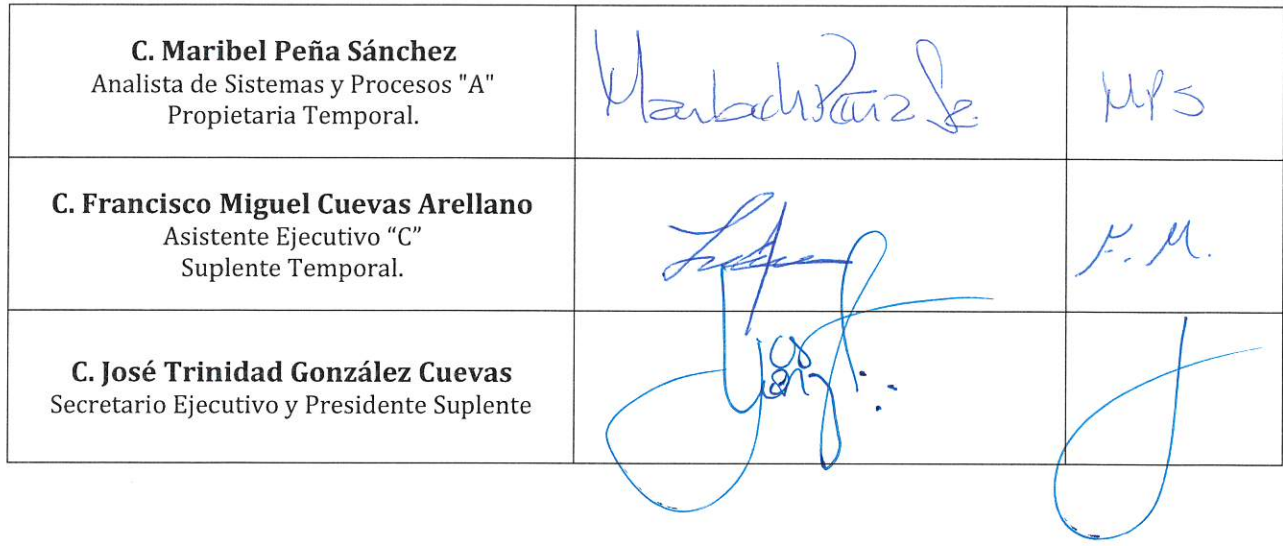 C. Maribel Peña Sánchez
Analista de Sistemas y Procesos "A"
Propietaria Temporal.
MPS
C. Francisco Miguel Cuevas Arellano
Asistente Ejecutivo “C”
Suplente Temporal.
F. M.
C. José Trinidad González Cuevas
Secretario Ejecutivo y Presidente Suplente